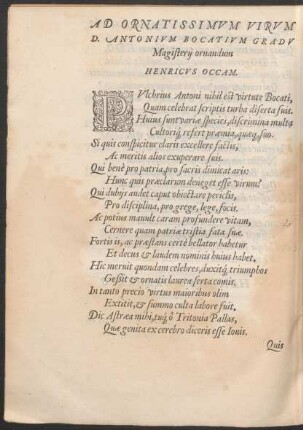 AD ORNATISSIMVM VIRVM
D. ANTONIVM BOCATIVM GRADV
Magisterij ornandum
HENRICVS OCCAM.
PVlchrius Antoni nihil est virtute Bocati,
Quam celebrat scriptis turba diserta suit.
Huius sunt variæ species, discrimina multa
Cultoriq́; refert præmia, quæq́; sua.
Si quis conspicitur claris excellere factis,
Ac meritis alios exuperare suis.
Qui benè pro patria, pro sacris dimicat aris:
Hunc quis præclarum deneget esse virum?
Qui dubijs audet caput obiectare periclis,
Pro disciplina, pro grege, lege, focis.
Ac potius mauult caram profundere vitam,
Cernere quam patriæ tristia fata suæ.
Fortis is, ac præstans certè bellator habetur
Et decus & laudem nominis huius habet,
Hic meruit quondam celebres, duxitq́; triumphos
Gessit & ornatis laurea serta comis.
In tanto precio virtus maioribus olim
Extitit, & summo culta labore fuit,
Dic Astræa mihi, tuq́; ô Tritonia Pallas,
Quæ genita ex cerebro diceris esse Iouis.
Quis